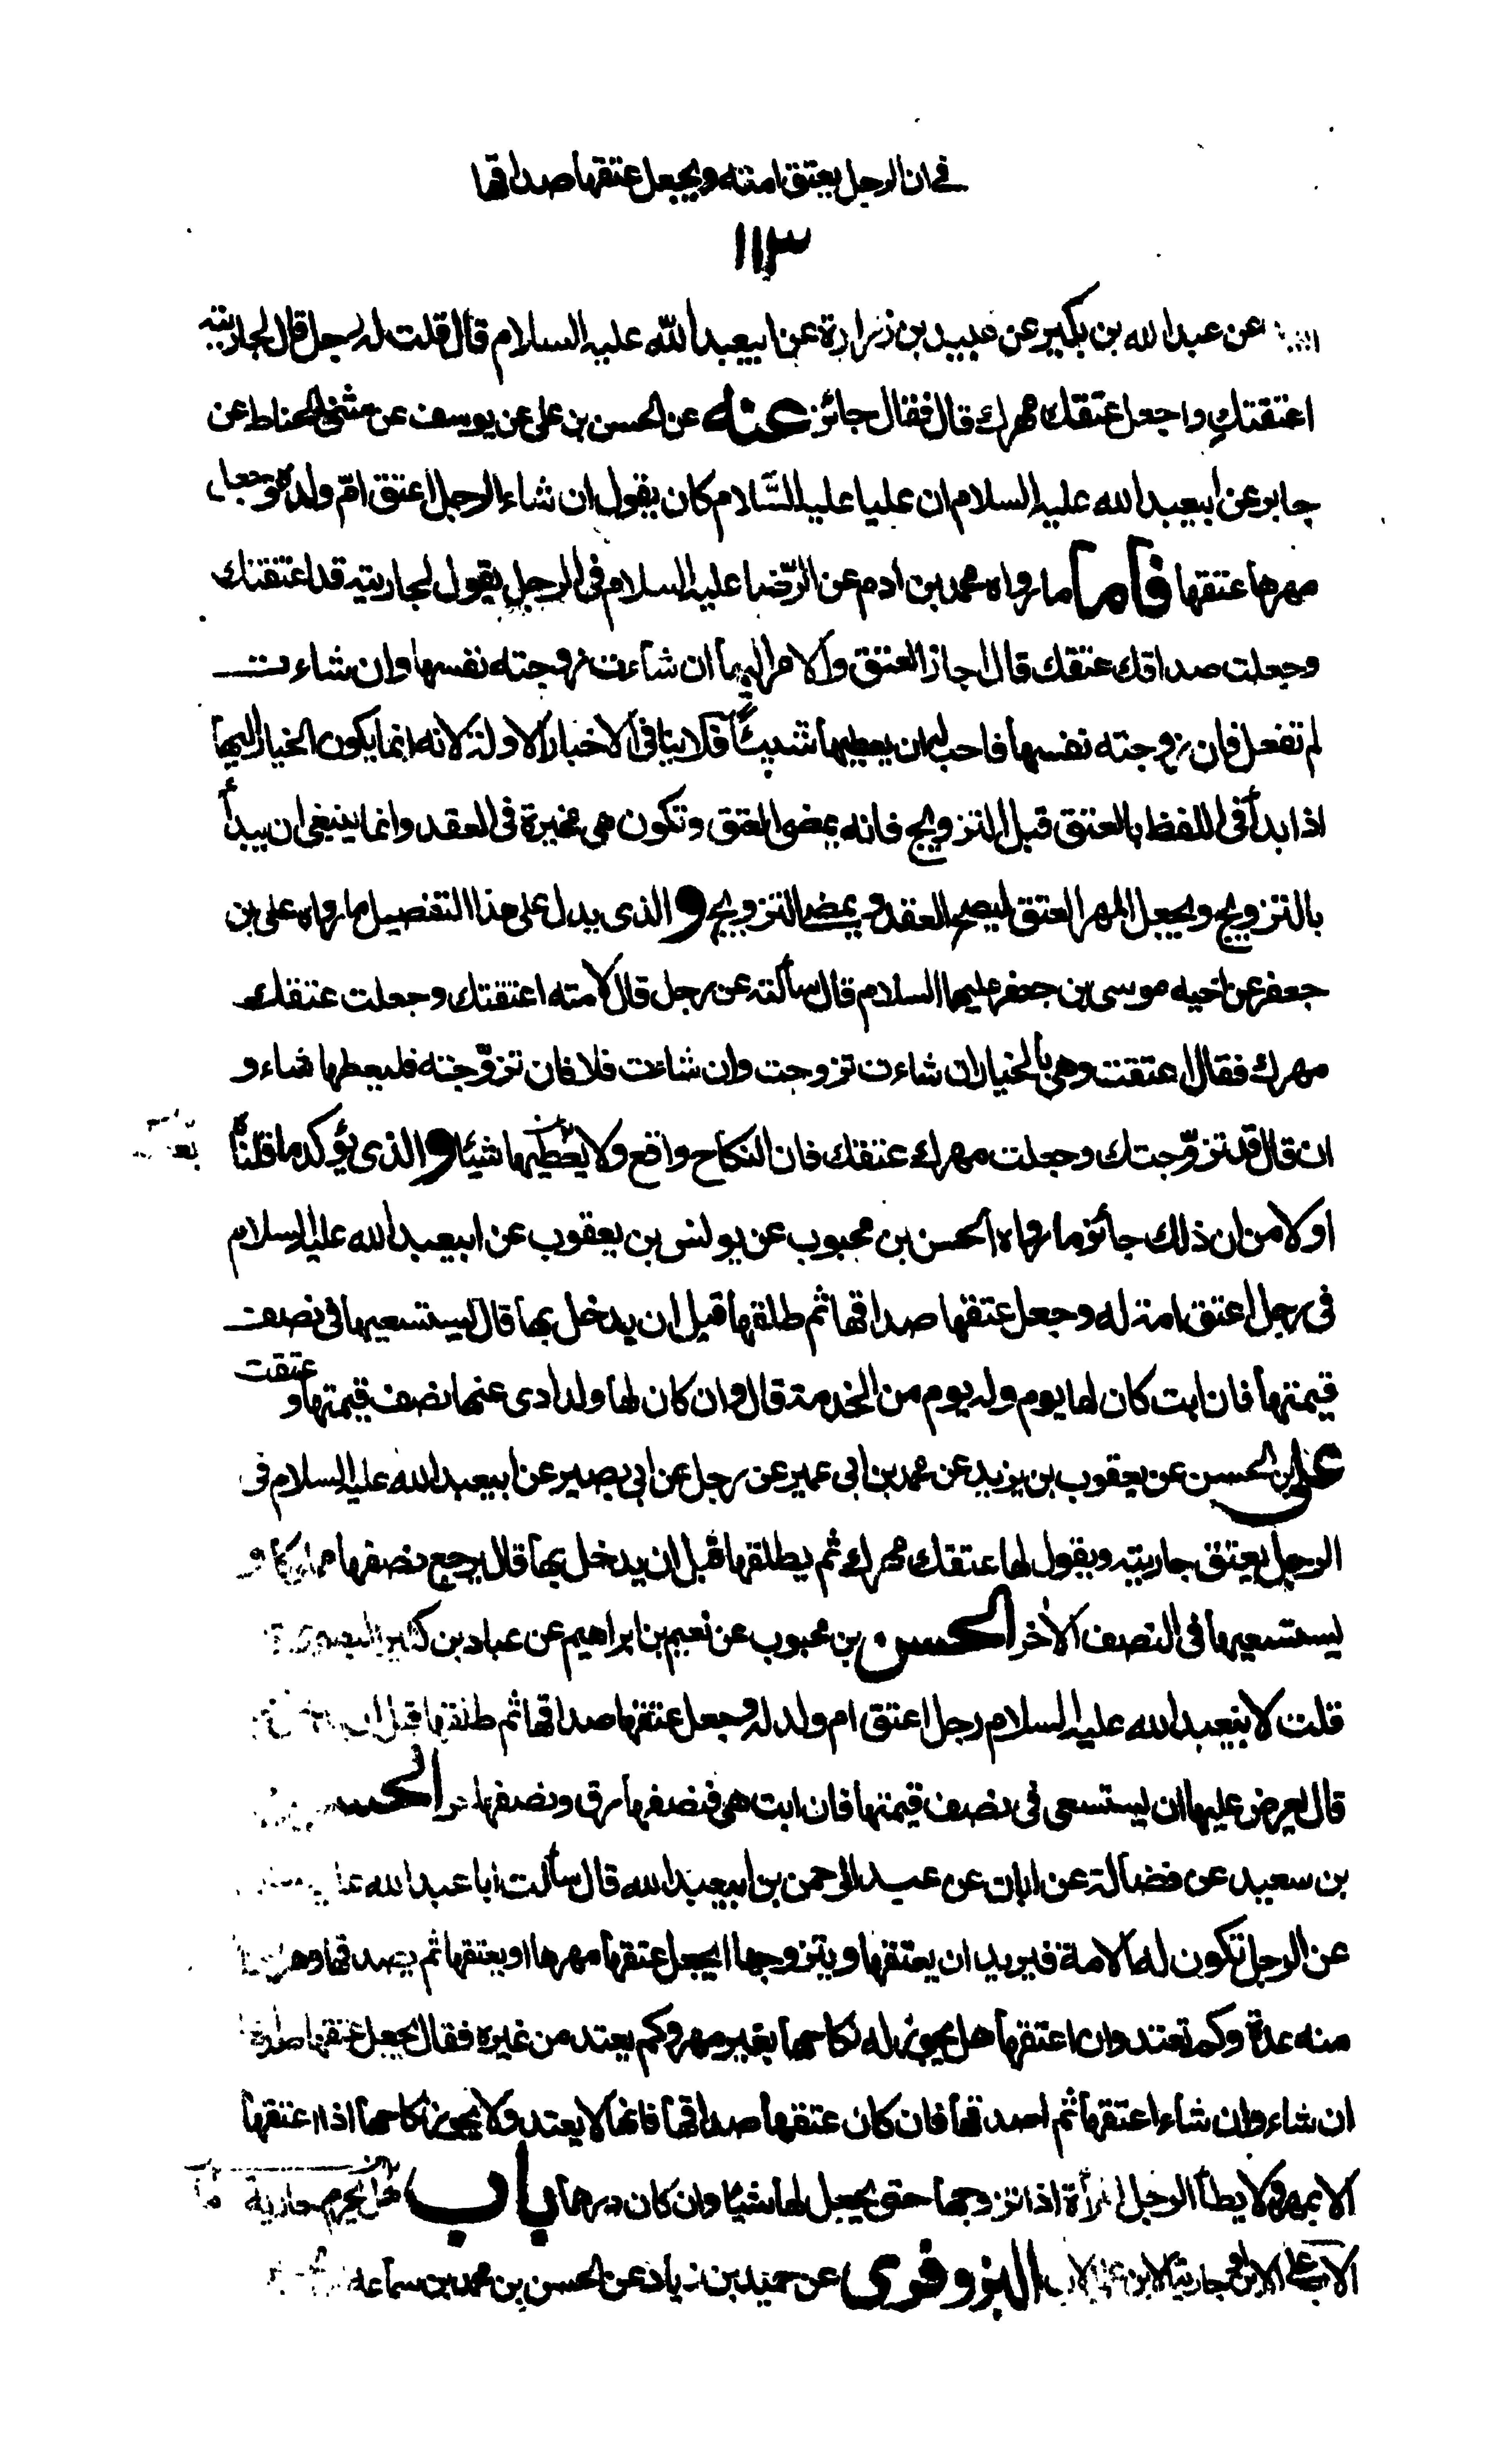 في ان الرجل يعتق امته ويجعل عتقها صداقها
١١٣
عن عبد الله بن بكير عن عبيد بن زرارة عن ابيعبد الله عليه السلام قال قلت له رجل قال لجاريته
اعتقتكِ واجعل عتقك مهرك قال فقال جائز عنه عن الحسن بن علي عن يوسف عن مثنى الحناط عن
جابر عن ابيعبد الله عليه السلام ان عليا عليه السّلام كان يقول ان شاء الرجل اعتق امّ ولده وجعل
مهرها عتقها فاما ما رواه محمد بن ادم عن الرّضا عليه السلام في الرجل يقول لجاريته قد اعتقتك
وجعلت صداقك عتقك قال جاز العتق والامر اليها ان شاءت زوجته نفسها وان شاءت
لم تفعل فان زوجته نفسها فاحب له ان يعطيها شيئاً فلا ينافي الاخبار الاولة لانه انما يكون الخيار اليها
اذا بدأ في اللفظ بالعتق قبل التزويج فانه يمضى العتق وتكون هي مخيرة في العقد وانما ينبغي ان يبدأ
بالتزويج ويجعل المهر العتق ليصح العقد ويمضى التزويج والذى يدل على هذا التفصيل ما رواه علي بن
جعفر عن اخيه موسى بن جعفر عليهما السلام قال سألته عن رجل قال لامته اعتقتك وجعلت عتقك
مهرك فقال اعتقت وهي بالخيار ان شاءت تزوجت وان شاءت فلا فان تزوّجته فليعطها شاء و
ان قال قد تزوّجتك وجعلت مهرك عتقك فان النكاح واقع ولا يعطيها شيئا والذى يؤكد ما قلناه
اولا من ان ذلك جائز ما رواه الحسن بن محبوب عن يونس بن يعقوب عن ابيعبد الله عليه السلام
في رجل اعتق امة له وجعل عتقها صداقها ثم طلقها قبل ان يدخل بها قال يستسعيها في نصف
قيمتها فان ابت كان لها يوم وله يوم من الخدمة قال وان كان لها ولد ادى عنها نصف قيمتها وعتقت
علي بن الحسن عن يعقوب بن يزيد عن محمد بن ابى عمير عن رجل عن ابى بصير عن ابيعبد الله عليه السلام في
الرجل يعتق جاريته ويقول لها عتقك مهرك ثم يطلقها قبل ان يدخل بها قال يرجع نصفها مملوكا و
يستسعيها في النصف الاخر الحسن بن محبوب عن نعيم بن ابراهيم عن عباد بن كثير البصرى
قلت لابيعبد الله عليه السلام رجل اعتق ام ولد له وجعل عتقها صداقها ثم طلقها قبل ان
قال يعرض عليها ان يستسعى في نصف قيمتها فان ابت هي فنصفها رق ونصفها حر الحسين
بن سعيد عن فضالة عن ابان عن عبد الرحمن بن ابيعبد الله قال سألت ابا عبد الله
عن الرجل تكون له الامة فيريد ان يعتقها ويتزوجها ايجعل عتقها مهرها او يعتقها ثم يصدقها وهل
منه عدة وكم تعتد وان اعتقها هل يجوز له نكاحها بغير مهر وكم يعتد من غيره فقال يجعل عتقها صداقها
ان شاء وان شاء اعتقها ثم اصدقها فان كان عتقها صداقها فانها لا يعتد ولا يجوز نكاحها اذا اعتقها
الا بمهر ولا يطأ الرجل المرأة اذا تزوجها حتى يجعل لها شيئا وان كان درهما باب ما يحرم جارية
الاب على الابن او جارية الابن على الاب البزوفرى عن حميد بن زياد عن الحسن بن محمد بن سماعة